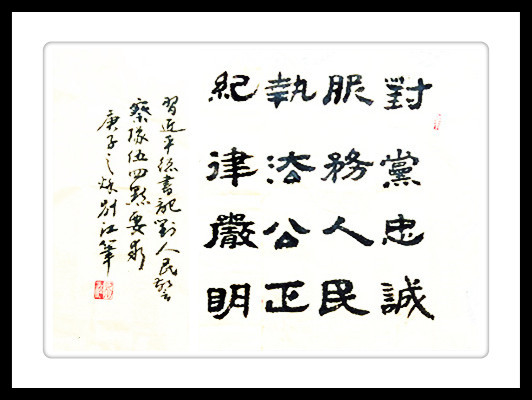 對黨忠誠
服務人民
執法公正
紀律嚴明
習近平總書記對人民警
察隊伍四點要求
庚子之秋刘江筆